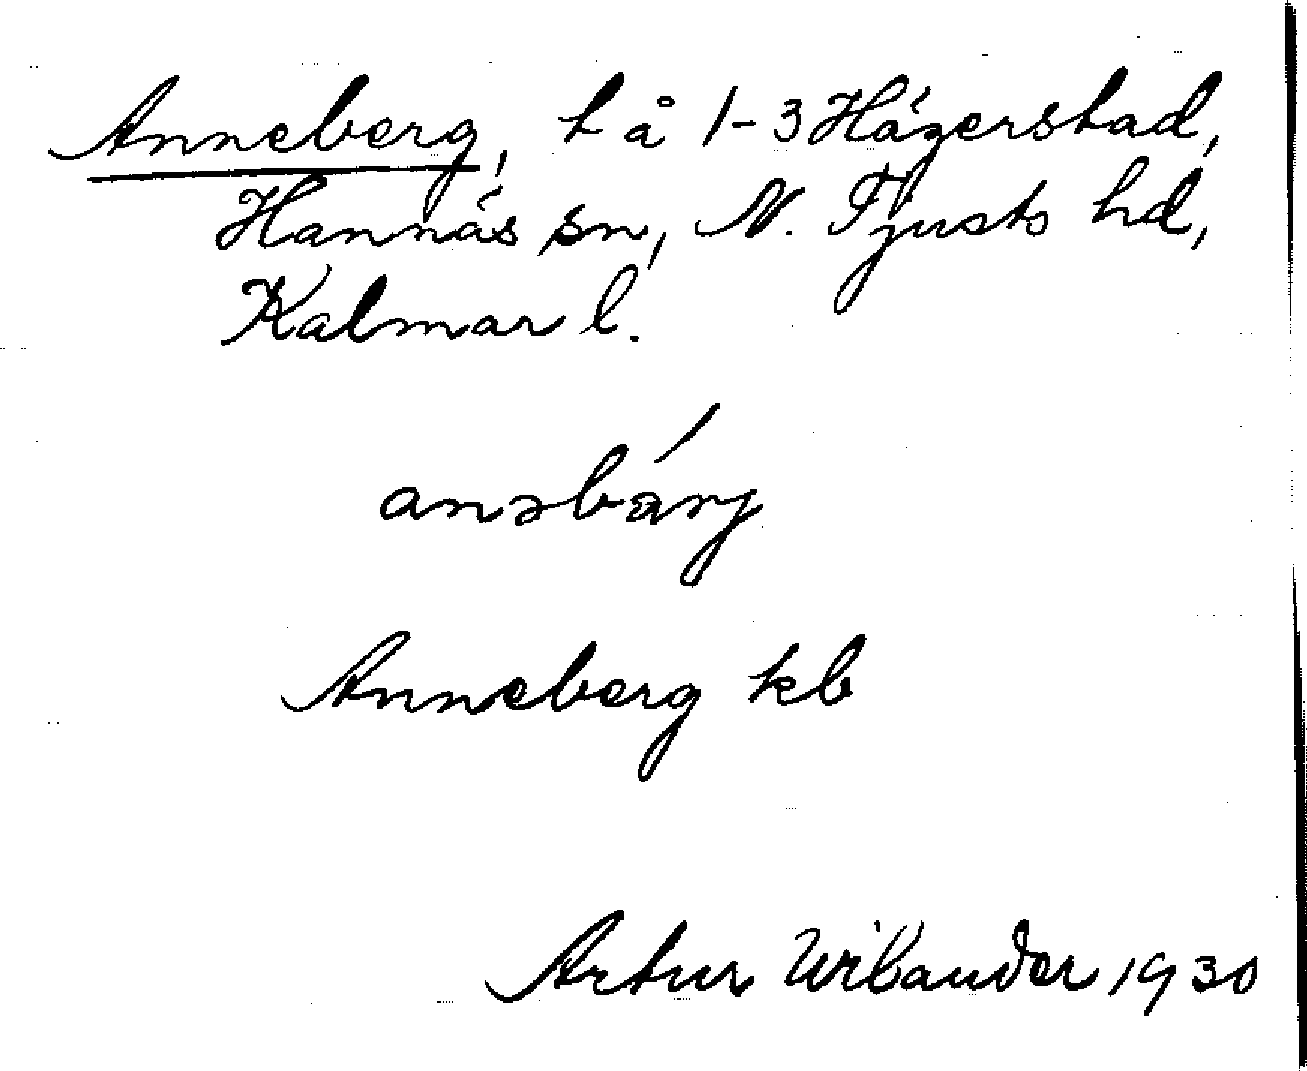 Anneberg, t å 1-3 Hägerstad,
Hannäs sn, N. Tjusts hd,
Kalmar l.
anəbärj
Anneberg kb
Artur Wilander 1930